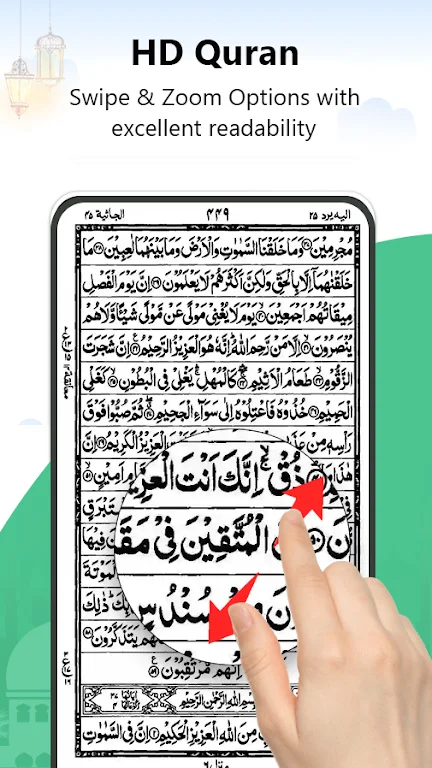 HD Quran
Swipe & Zoom Options with
excellent readability
الجاثية ٤٥ ٤٤٩ اليه يرد ٢٥
مُجْرِمِيْنَ وَمَا خَلَقْنَا السَّمٰوٰتِ وَالْاَرْضَ وَمَا بَيْنَهُمَا لٰعِبِيْنَ مَا
خَلَقْنٰهُمَآ اِلَّا بِالْحَقِّ وَلٰكِنَّ اَكْثَرَهُمْ لَا يَعْلَمُوْنَ اِنَّ يَوْمَ الْفَصْلِ
مِيْقَاتُهُمْ اَجْمَعِيْنَ يَوْمَ لَا يُغْنِيْ مَوْلًى عَنْ مَّوْلًى شَيْـًٔا وَّلَا هُمْ
يُنْصَرُوْنَ اِلَّا مَنْ رَّحِمَ اللّٰهُ اِنَّهٗ هُوَ الْعَزِيْزُ الرَّحِيْمُ اِنَّ شَجَرَتَ
الزَّقُّوْمِ طَعَامُ الْاَثِيْمِ كَالْمُهْلِ يَغْلِيْ فِي الْبُطُوْنِ كَغَلْيِ
الْحَمِيْمِ خُذُوْهُ فَاعْتِلُوْهُ اِلٰى سَوَآءِ الْجَحِيْمِ ثُمَّ صُبُّوْا فَوْقَ
رَاْسِهٖ مِنْ الْعَزِيْزُ الْكَرِيْمُ اِنَّ
هٰذَا اَمِيْنٍ
ذُقْ اِنَّكَ اَنْتَ
الْمُتَّقِيْنَ فِيْ
سُنْدُسٍ
فِيْهَا
الْمَوْتَةَ
ذٰلِكَ
يَتَذَكَّرُوْنَ
اِنَّهُمْ مُّرْتَقِبُوْنَ
بِسْمِ اللّٰهِ الرَّحْمٰنِ الرَّحِيْمِ
مِنَ اللّٰهِ الْعَزِيْزِ الْحَكِيْمِ اِنَّ فِي السَّمٰوٰتِ